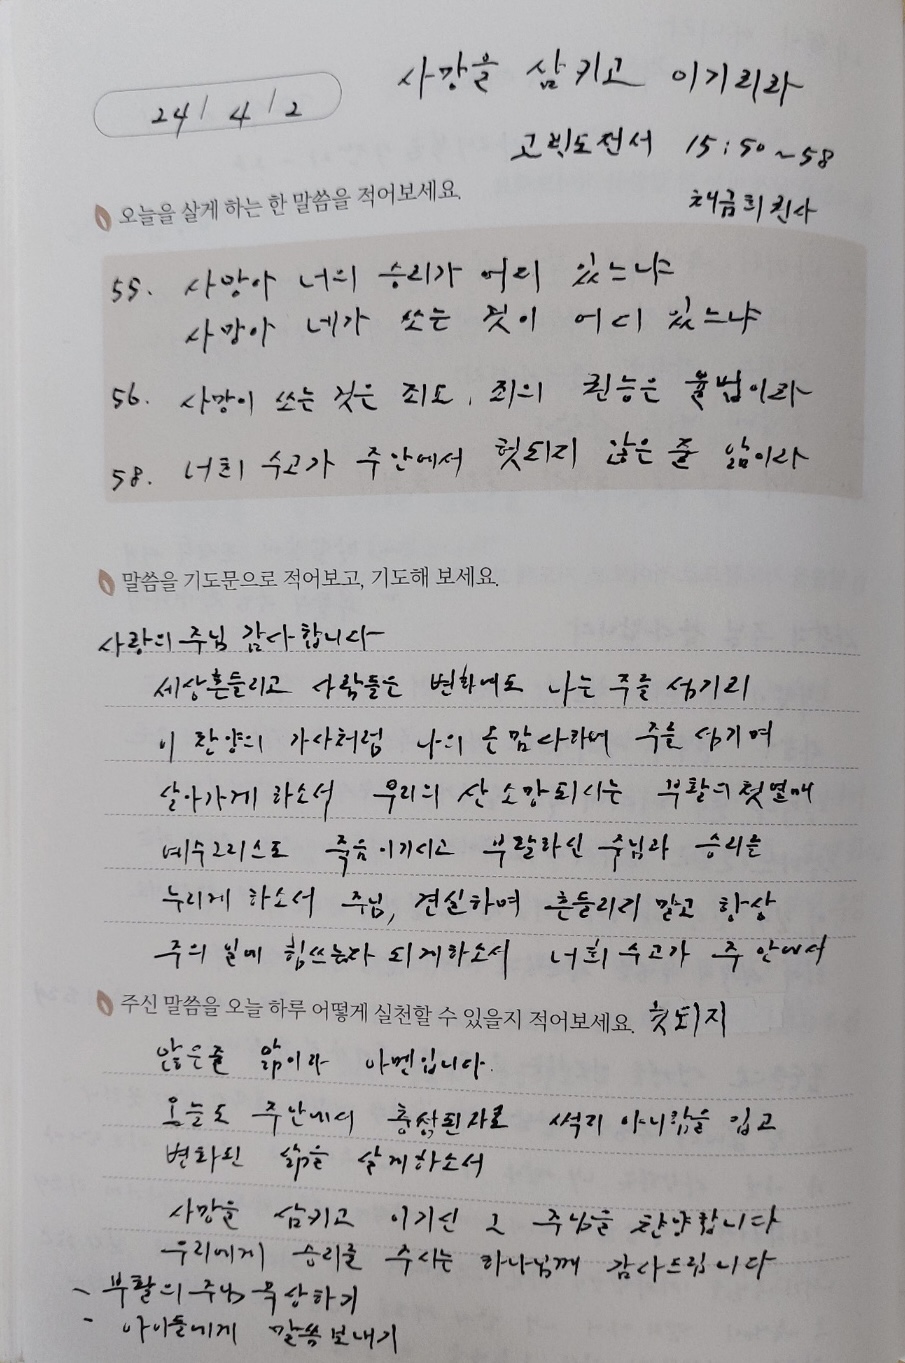 사망을 삼키고 이기리라
24/ 4/2
고린도전서 15:50~58
채금희권사
오늘을 살게 하는 한 말씀을 적어보세요.
55. 사망아 너의 승리가 어디 있느냐
사망아 네가 쏘는 것이 어디 있느냐
56. 사망이 쏘는 것은 죄도, 죄의 권능은 율법이라
58. 너희 수고가 주안에서 헛되지 않은 줄 앎이라
말씀을 기도문으로 적어보고, 기도해 보세요.
사랑의 주님 감사합니다
세상흔들리고 사람들은 변하여도 나는 주를 섬기리
이 찬양의 가사처럼 나의 온맘다하여 주를 섬기며
살아가게 하소서 우리의 산 소망되시는 부활의 첫열매
예수그리스도 죽음 이기시고 부활하신 주님과 승리을
누리게 하소서 주님, 견실하며 흔들리지 말고 항상
주의 일에 힘쓰는자 되게하소서 너희 수고가 주 안에서
주신 말씀을 오늘 하루 어떻게 실천할 수 있을지 적어보세요. 헛되지
않은줄 앎이라 아멘입니다.
오늘도 주안에서 썩지 아니함을 입고
변화된 삶을 살게하소서
사망을 삼키고 이기신 그 주님을 찬양합니다
우리에게 승리를 주시는 하나님께 감사드립니다
- 부활의 주님 묵상하기
- 아이들에게 말씀보내기